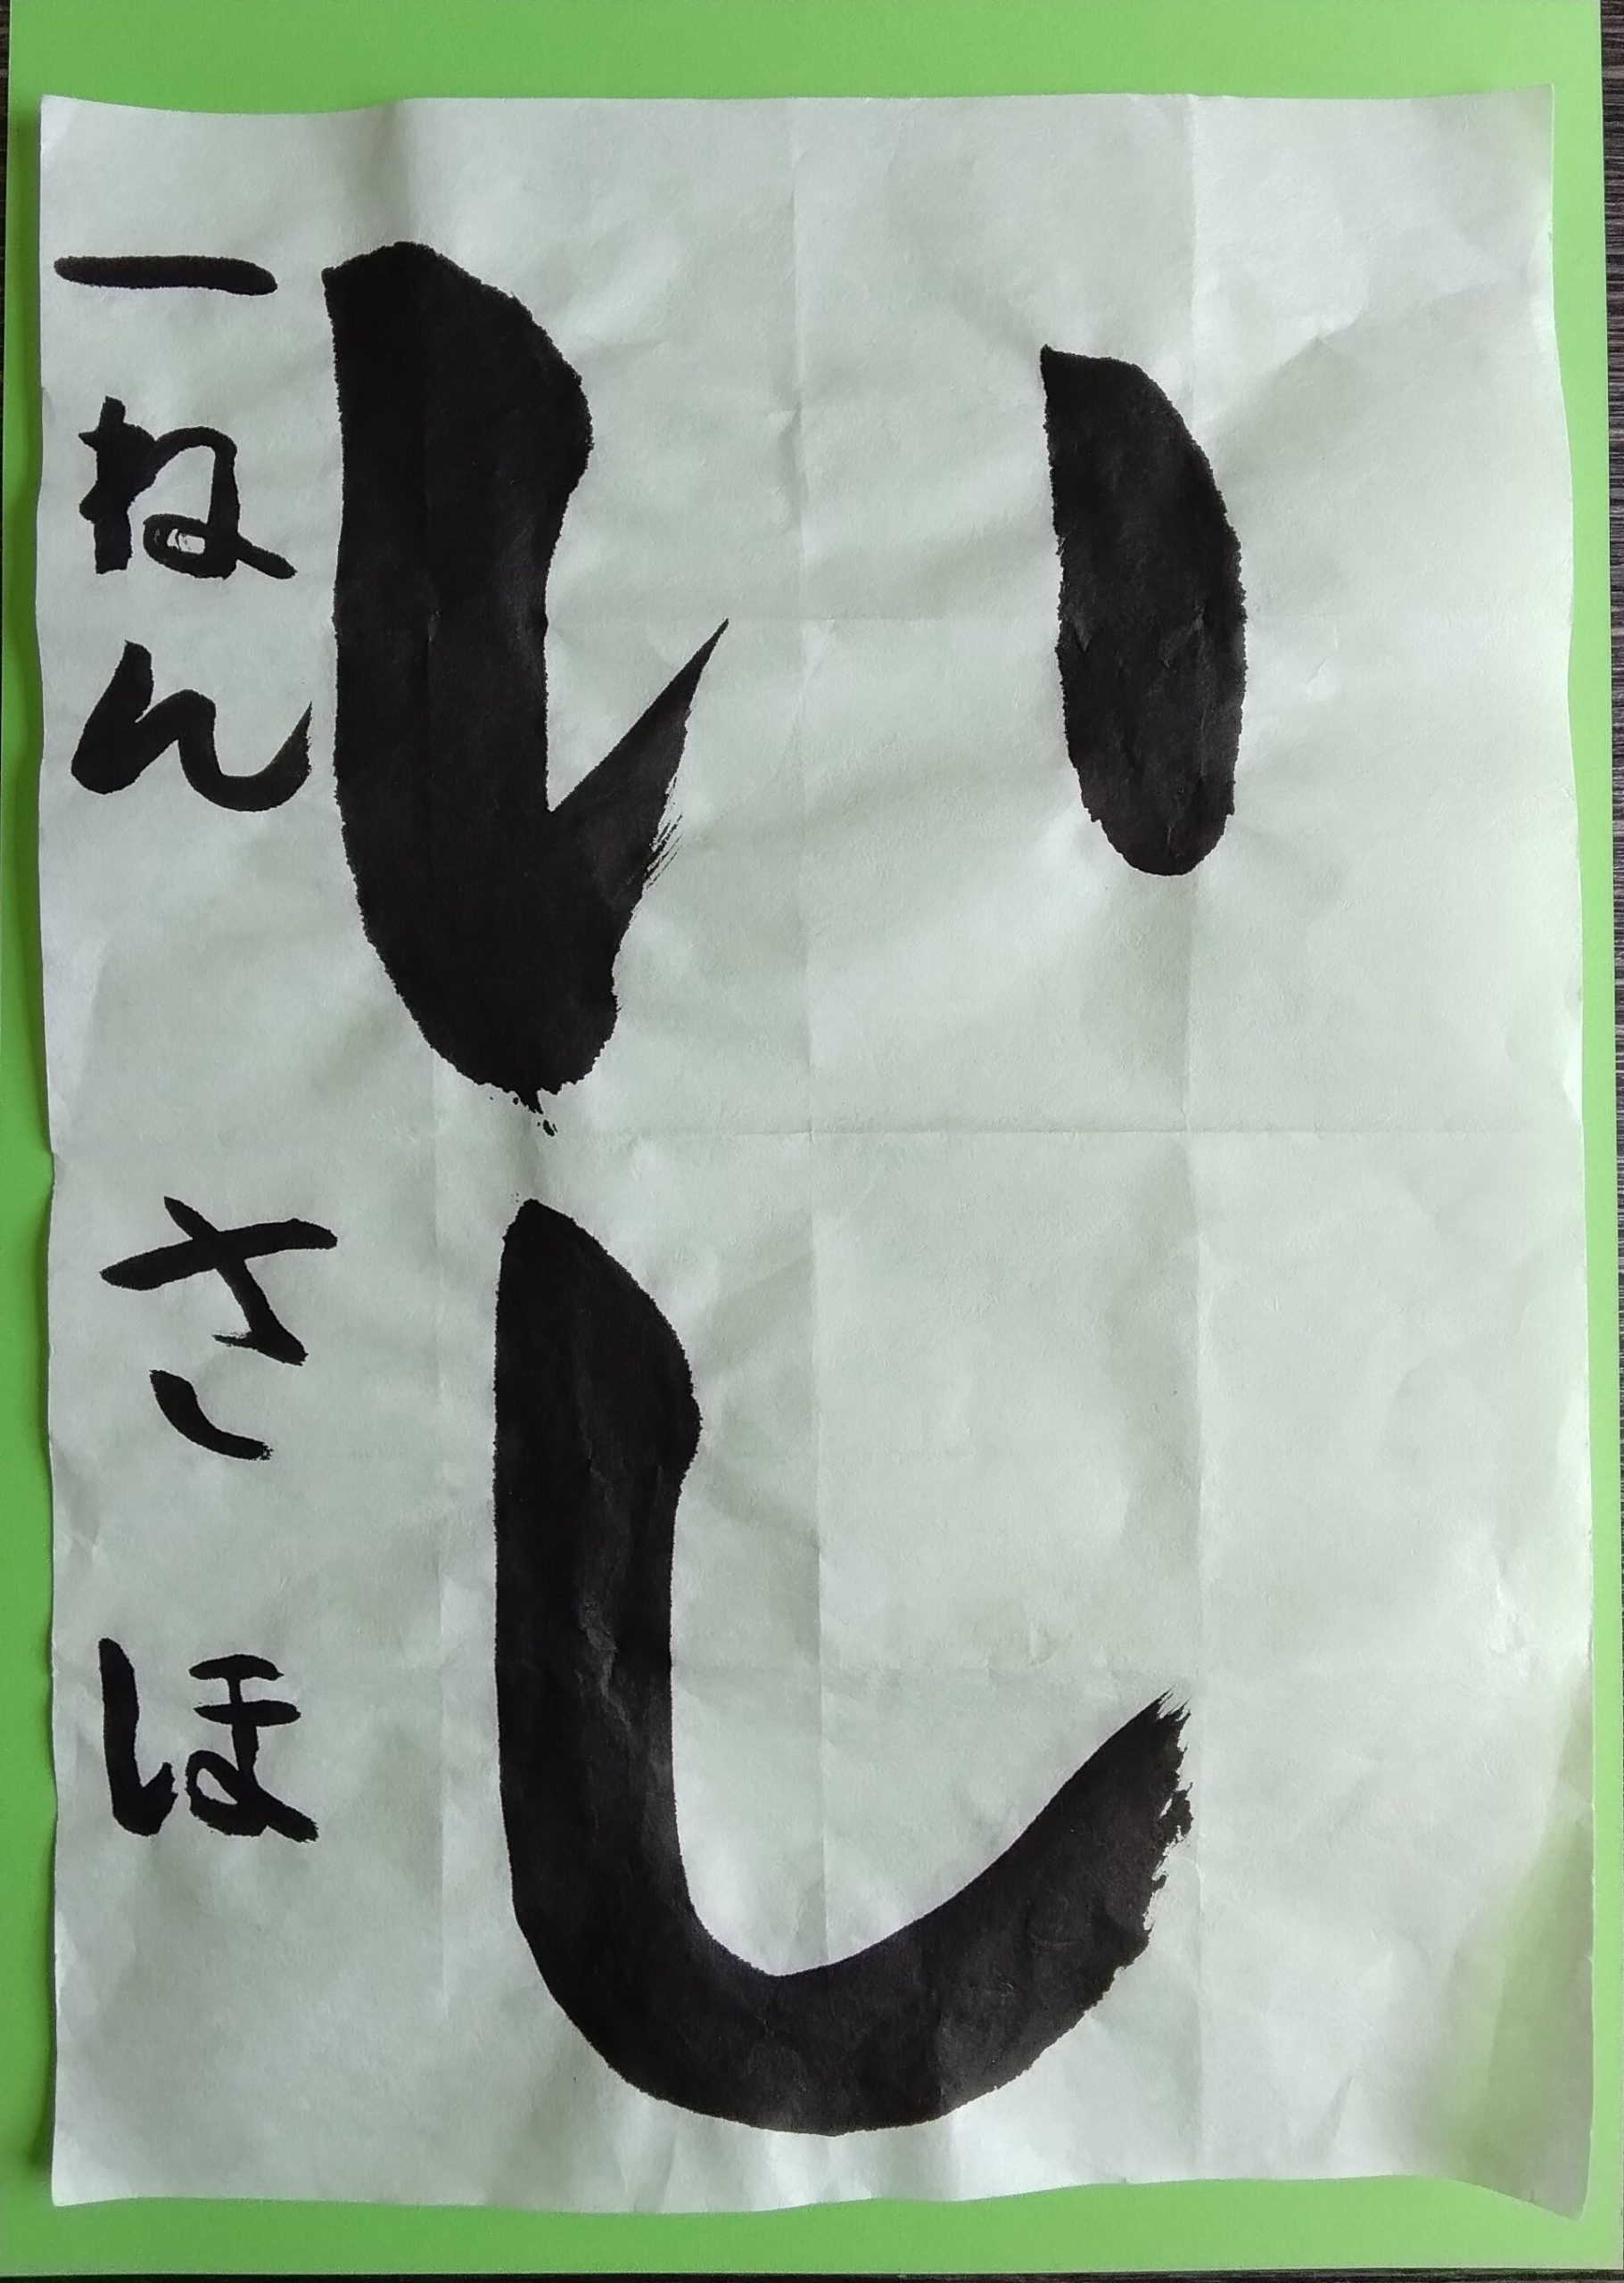 いし
一ねん さほ